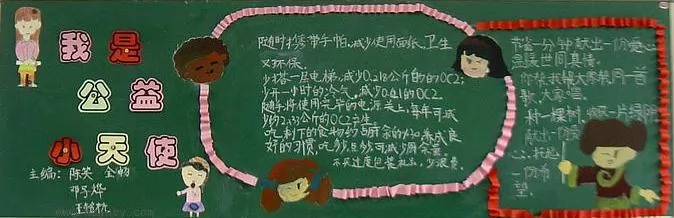 我是
公益
小天使
主编：陈笑
随时携带手帕、减少使用面纸、卫生
又环保。
少搭一层电梯、减少0.218公斤的的OC2；
少开一小时的冷气，减少0.621的OC2.
随手将使用完毕的电源关上，每年可减
少约2.33公斤的OC2产生。
吃剩下的食物约
好的习惯，吃多少
不买过度包装礼品，少浪费。
节省一分钟献出一份爱心
温暖世间真情。
你帮我帮大家帮同一首
歌，大家唱。
种一棵树，一片绿阴
献出一份爱
心、托起
一份希
望。